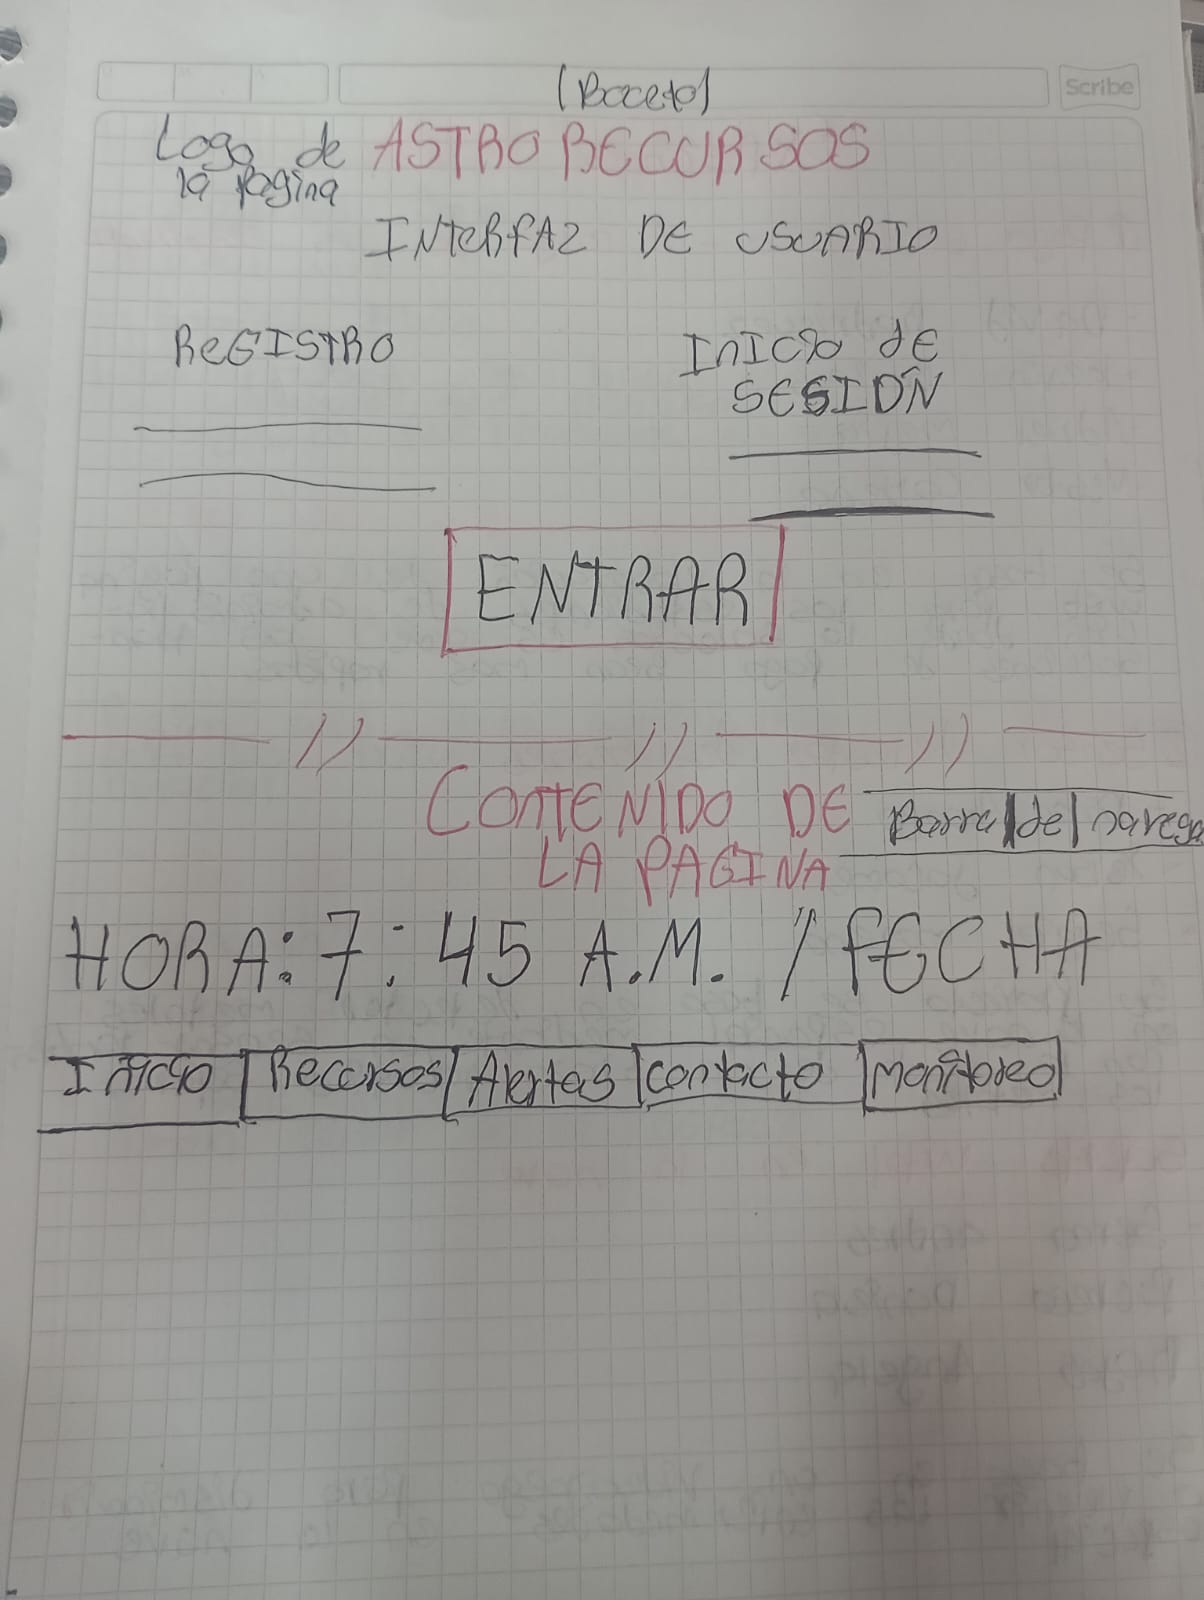 (Boceto)
Scribe
Logo de ASTRO RECURSOS
la pagina
INTERFAZ DE USUARIO
REGISTRO
INICIO DE
SESIÓN
ENTRAR
CONTENIDO DE
LA PAGINA
Barra de navega
HORA: 7:45 A.M. // FECHA
Inicio Recursos Alertas contacto Monitoreo